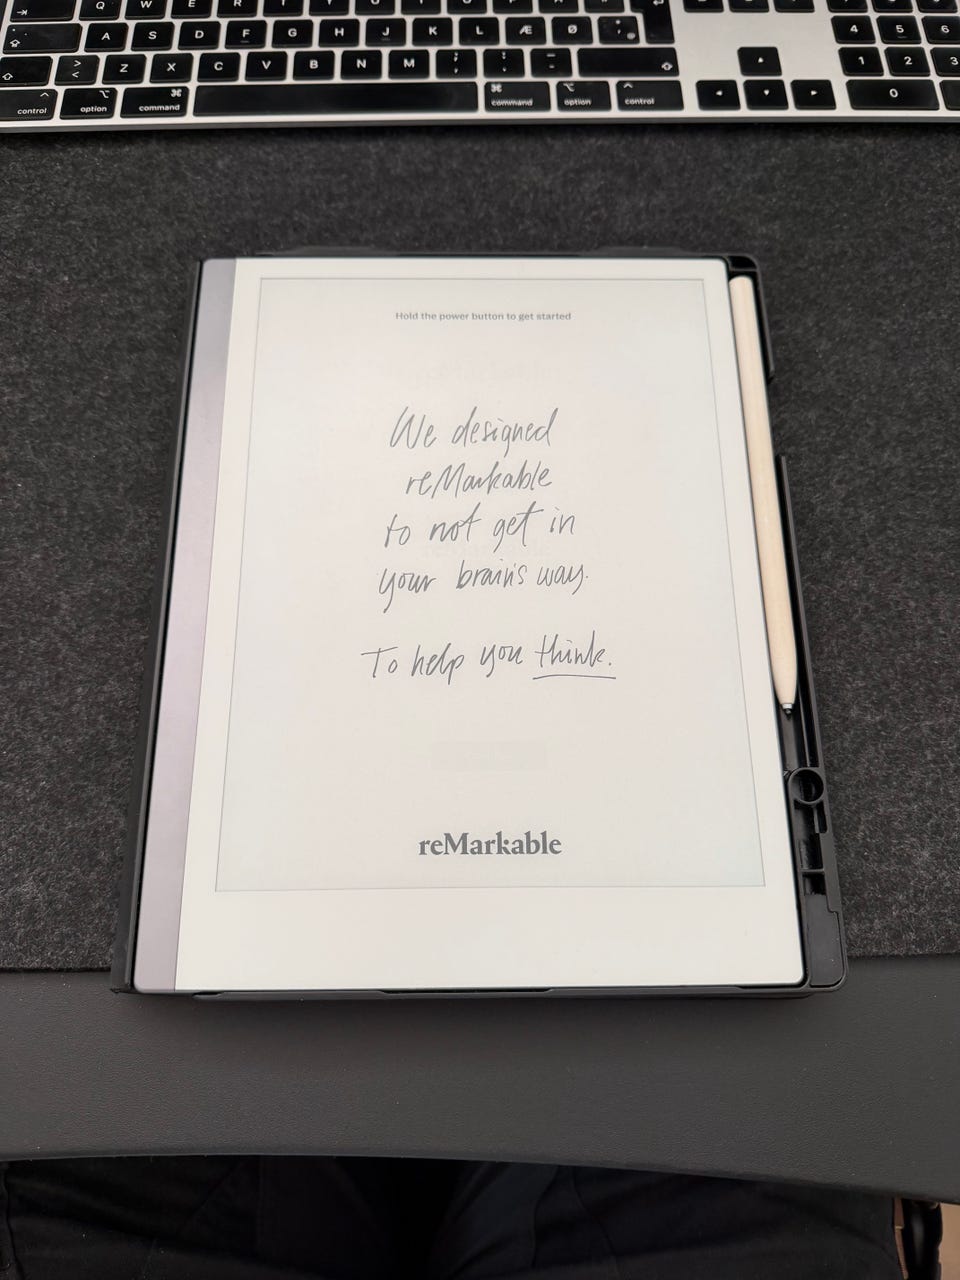 Q W E R T
A S D F G H J K L Æ Ø
4 5 6
> < Z X C V B N M ; , : . _ -
1 2 3
control option command command option control
0
Hold the power button to get started
We designed
reMarkable
to not get in
your brain's way.
To help you think.
reMarkable